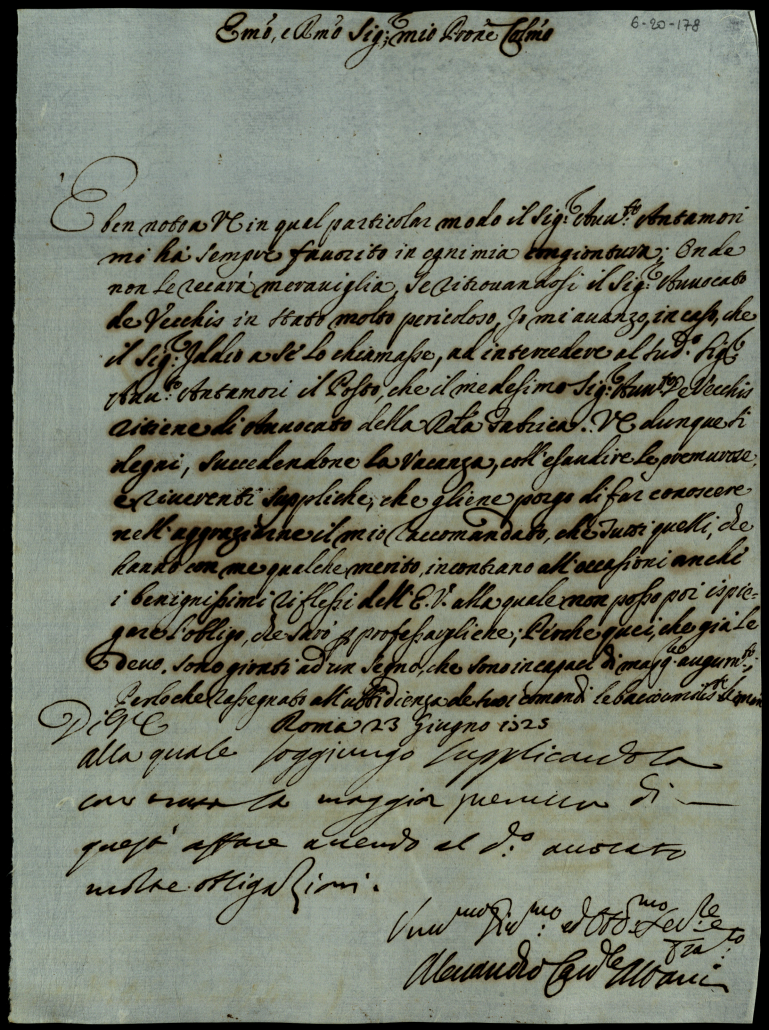 6-20-178
Em͞o, e Rm͞o Sig:r mio Pro͞ne Col͞mo
E ben noto a VE in qual particolar modo il Sig:r Auu:to Antamori
mi hà sempre fauorito in ogni mia congiontura; Onde
non Le recarà meraviglia, se ritrouandosi il Sig:r Auuocato
de Vecchis in stato molto pericoloso, Io mi auanzo, in caso, che
il Sig:r Iddio a sè Lo chiamasse, ad intercedere al sud:o Sig:r
Auu:to Antamori il Posto, che il medesimo Sig:r Auu:to De Vecchis
ritiene di Auuocato della Rda Fabrica. VE dunque si
degni, succedendone la Vacanza, coll'esaudire Le premurose,
e riuerenti suppliche, che gliene porgo di far conoscere
nell'aggraziarne il mio raccomandato, che tutti quelli, che
hanno con me qualche merito, incontrano all'occasioni anche
i benignissimi riflessi dell'E.V. alla quale non posso poi ispie-
gare L'obligo, che sarò p professargliche; Perche quei, che già Le
deuo, sono gionti ad un segno, che sono incapaci di magg:r augum:to;
Perloche rassegnato all'ubbidienza de suoi comandi le bacio umilis:te le mani
Di VE Roma 23 Giugno 1725
alla quale soggiungo supplicandola
con tutta la maggior premura di
quest' affare auendo al d:o auocato
molte obligazioni.
Um:mo Diu:mo ed Obb:mo Ser:re
Alessandro Card:le Albani